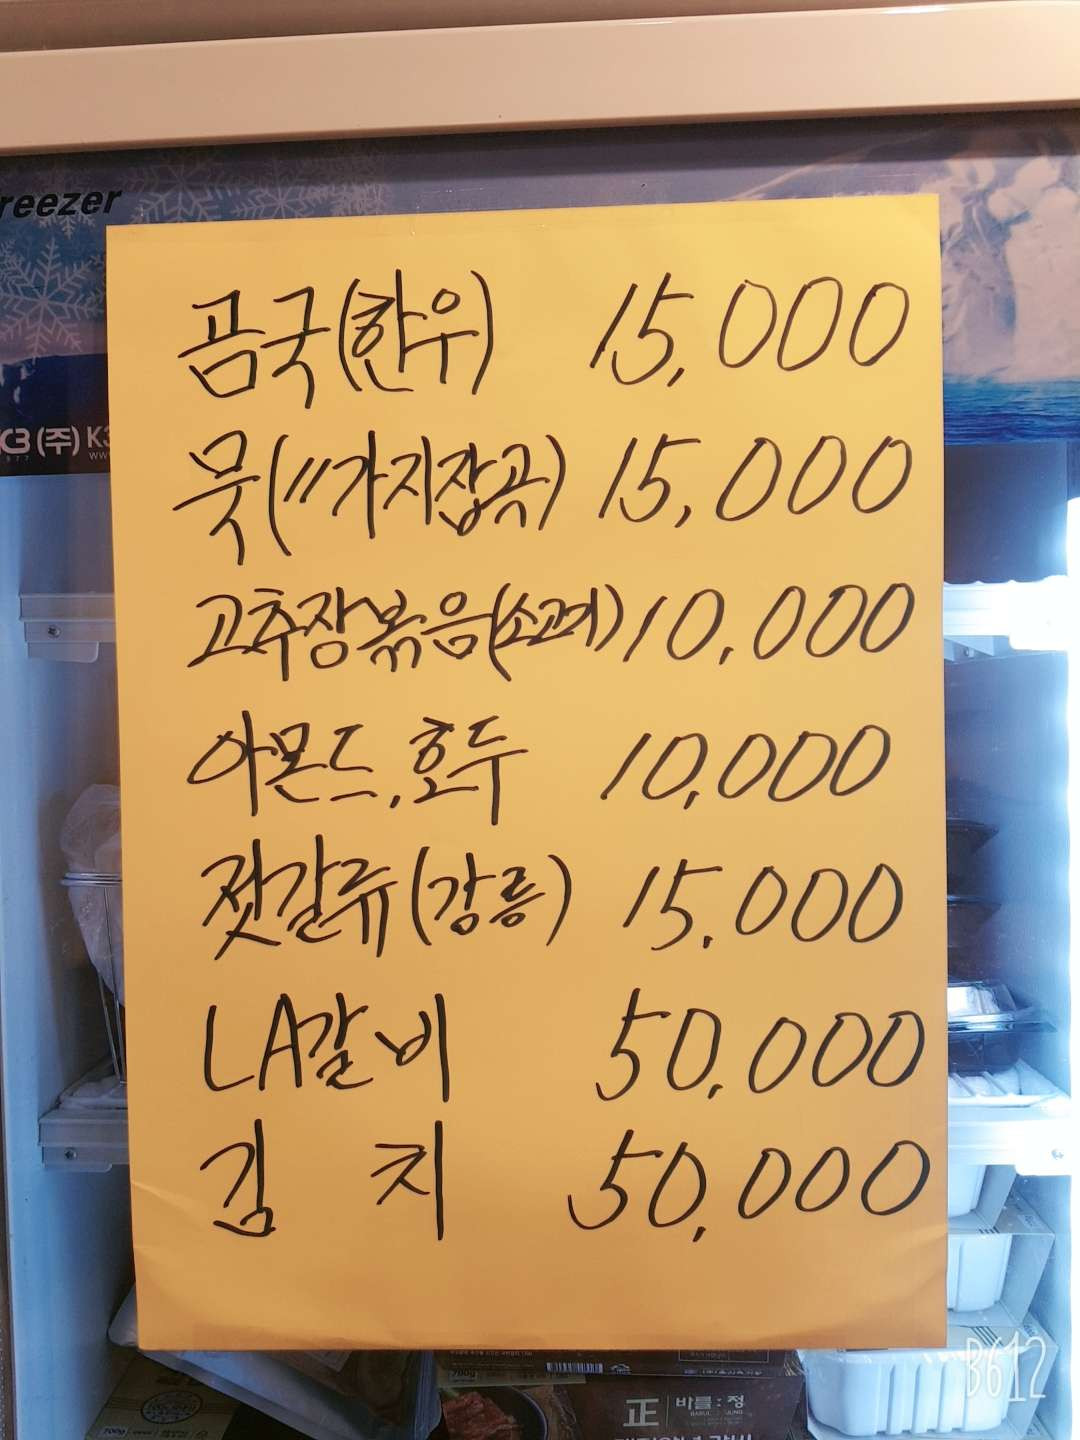 reezer
곰국(한우) 15,000
K3 (주) K3
묵(11가지잡곡) 15,000
고추장볶음(소고기) 10,000
아몬드, 호두 10,000
젓갈류(강릉) 15,000
LA갈비 50,000
김 치 50,000
700g
正 바를:정
BARUL JUNG
700g
B612